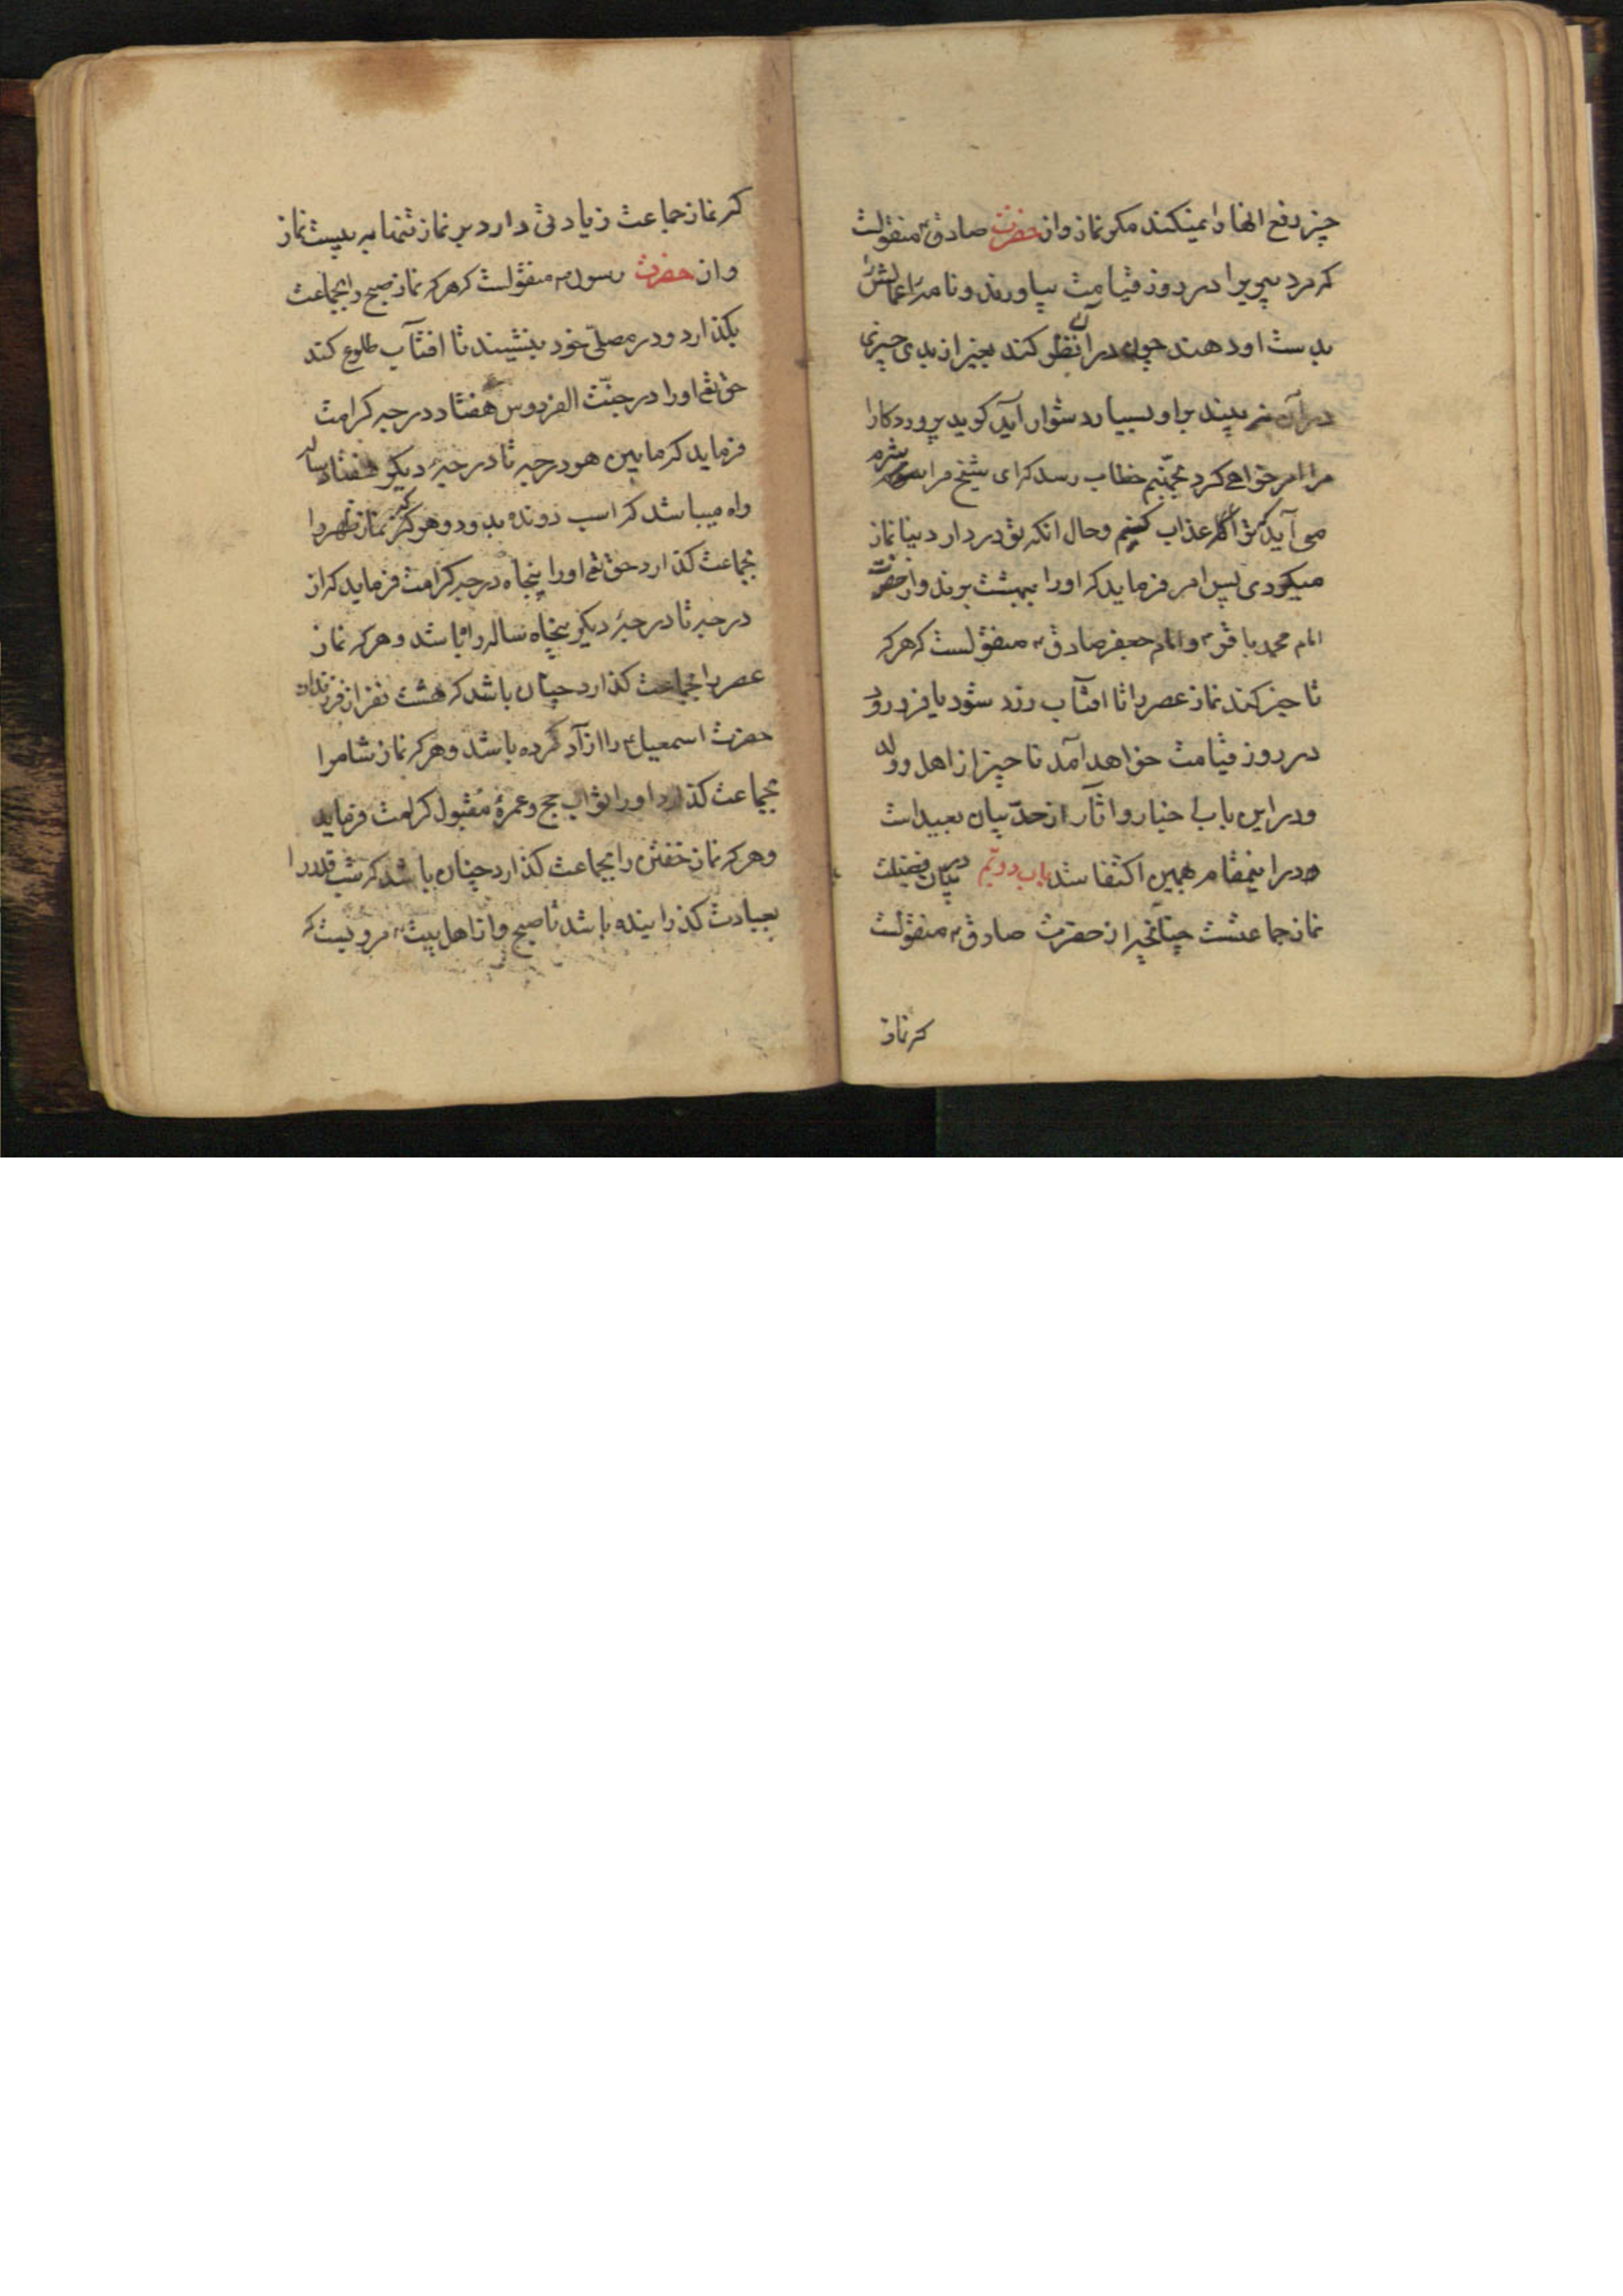 چیز رفع انها را نمیکند مکر نماز و از حضرت صادق ع منقولست
که مرد پیریرا در روز قیامت بیاورند و نامهٔ اعمالش را
بدست او دهند چون در آن نظر کند بغیر از بدی چیزی
در آن نه بیند بر او بسیار دشوار آید کوید پروردکارا
مرا امر خواهی کرد بجهنم خطاب رسد که ای شیخ مرا شرم
می آید که ترا عذاب کنم و حال انکه تو در دار دنیا نماز
میکردی پس امر فرماید که او را ببهشت برند و از حضرت
امام محمد باقر ع و امام جعفر صادق ع منقولست که هر که
تاخیر کند نماز عصر را تا افتآب زرد شود یا فرو رود
در روز قیامت خواهد آمد تاخیر از اهل و ولد
و در این باب اخبار و اثار از حدّ بیان بعید است
و در اینمقام بهمین اکتفا شد باب دویّم در بیان فضیلت
نماز جماعتست چنانچه از حضرت صادق ع منقولست
که نماز
که نماز جماعت زیادتی دارد بر نماز تنها به بیست نماز
و از حضرت رسول ص منقولست که هر که نماز صبح را بجماعت
بکذارد و در مصلّی خود بنشیند تا افتآب طلوع کند
حق تعٰ او را در جنّت الفردوس هفتاد درجه کرامت
فرماید که مابین هر درجه تا درجهٔ دیکر هفتاد ساله
راه میباشد که اسب دونده بدود و هر که نماز ظهر را
بجماعت کذارد حق تعٰ او را پنجاه درجه کرامت فرماید که از
درجه تا درجهٔ دیکر پنجاه ساله راه باشد و هر که نماز
عصر را بجماعت کذارد چنان باشد که هشت نفر از فرزندان
حضرت اسمعیل ع را ازاد کرده باشد و هر که نماز شام را
بجماعت کذارد او را ثواب حج و عمرهٔ مقبول کرامت فرماید
و هر که نماز خفتن را بجماعت کذارد چنان باشد که شب قدر را
بعبادت کذرانیده باشد تا صبح و از اهل بیت ع مرویست که